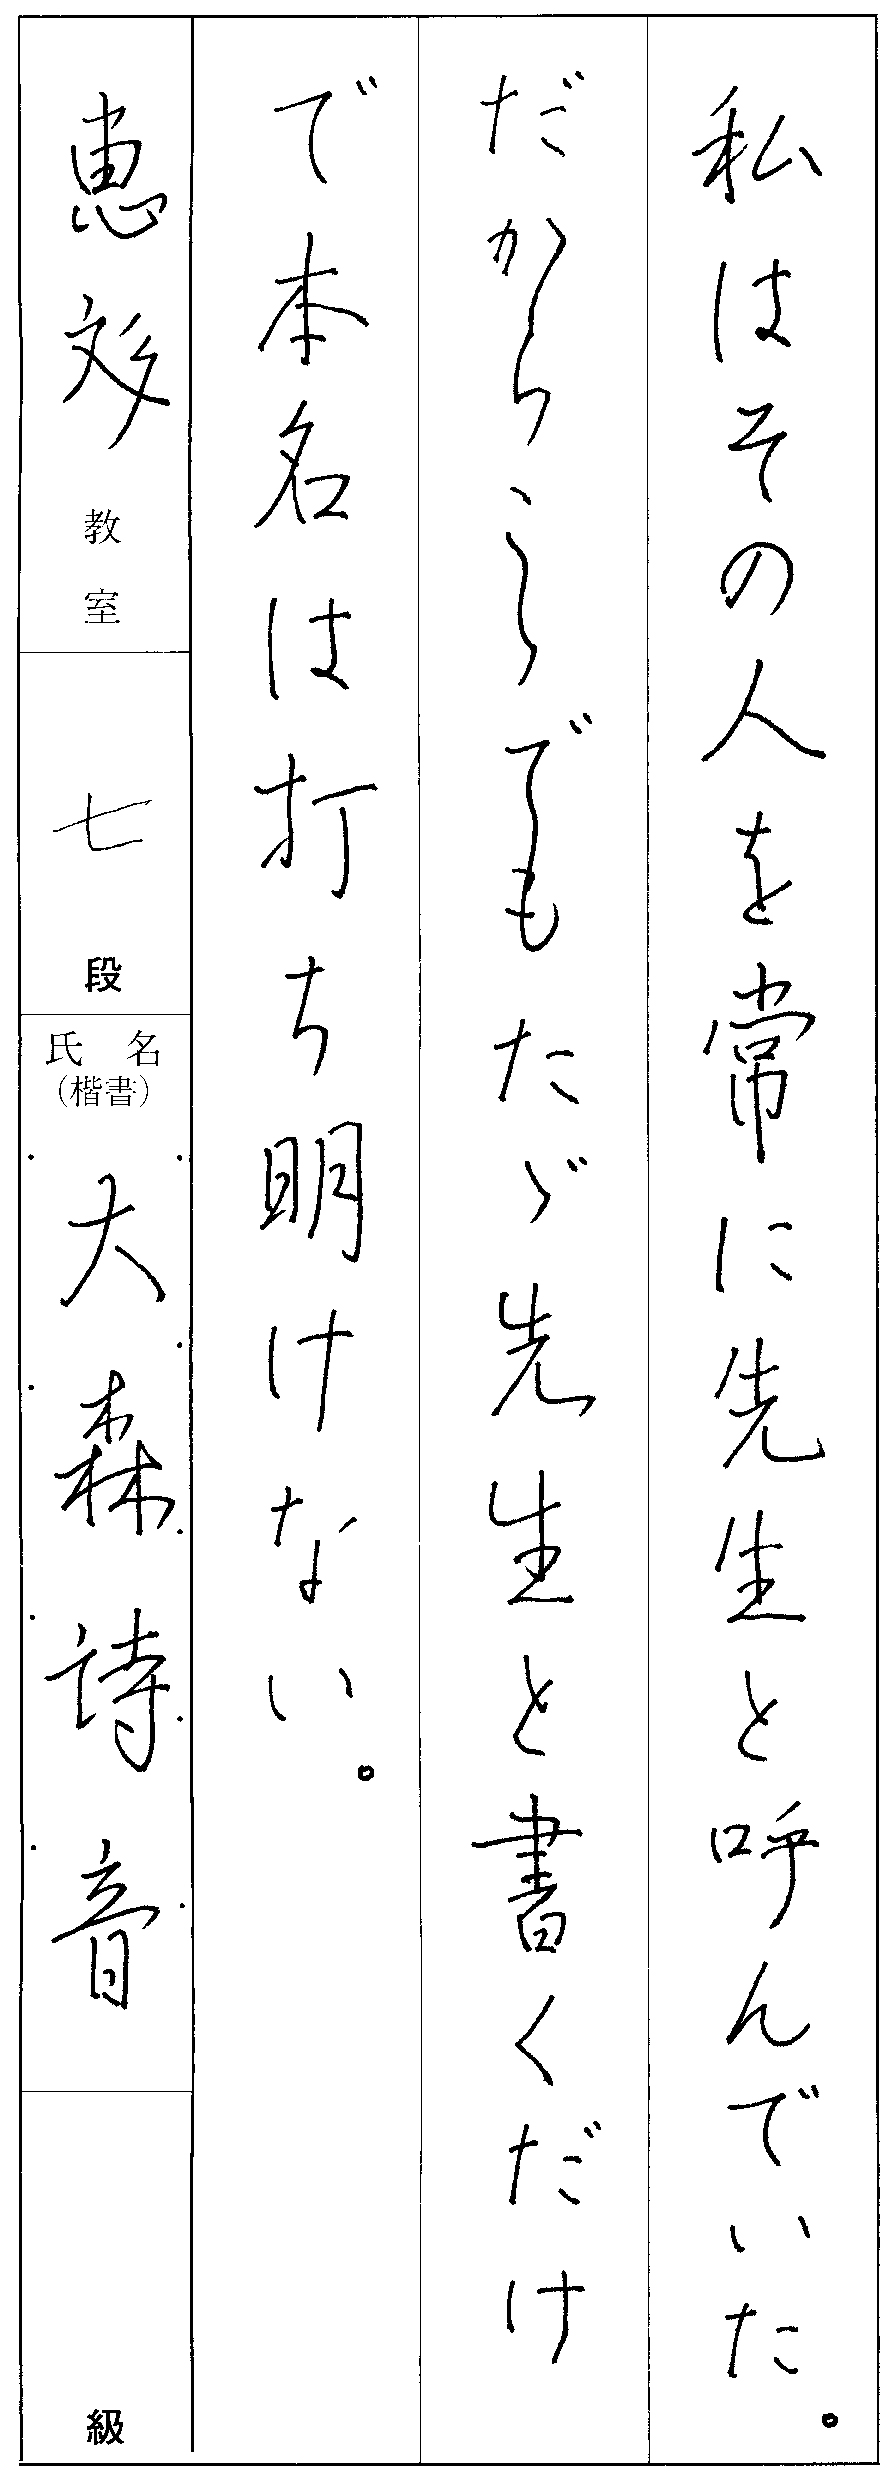 私はその人を常に先生と呼んでいた。
だからここでもたゞ先生と書くだけ
で本名は打ち明けない。
恵彣教室
七段
氏名
(楷書)
大森詩音
級